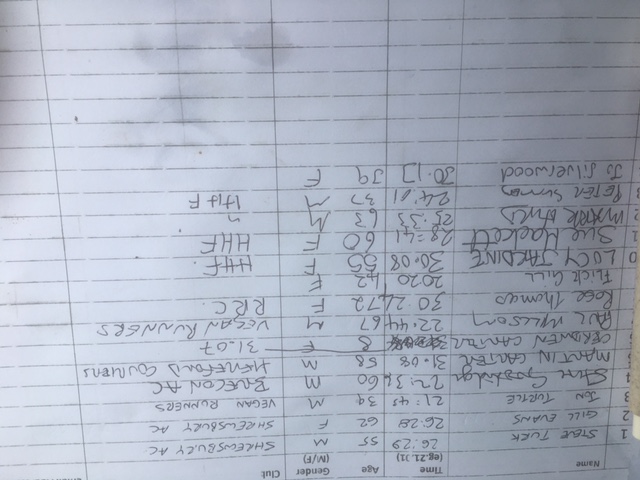 Name Time (eg.21.31) Age Gender (M/F) Club
1 STEVE TURK 26:29 55 M SHREWSBURY AC
2 GILL EVANS 26:28 62 F SHREWSBURY AC
3 JON TURTLE 21:45 39 M VEGAN RUNNERS
4 Steve 22:36 60 M BRECON AC
MARTIN CARTER 31.08 58 M HEREFORD COURIERS
CERIDWEN CARTER 8 F 31.07
PAUL WILLSON 22.44 67 M VEGAN RUNNERS
Rose Thomas 30.24 72 F RRC
Flick Gill 2020 42 F
0 LUCY JARDINE 30.08 55 F HHF
1 Sue Hackett 28:41 60 F HHF
2 MARK 25.33 63 M "
3 PETER 24:01 37 M HHF
Jo Silverwood 30.13 39 F